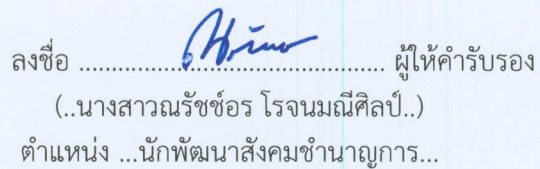 ลงชื่อ ................................................ ผู้ให้คำรับรอง
(..นางสาวณรัชช์อร โรจนมณีศิลป์..)
ตำแหน่ง ...นักพัฒนาสังคมชำนาญการ...